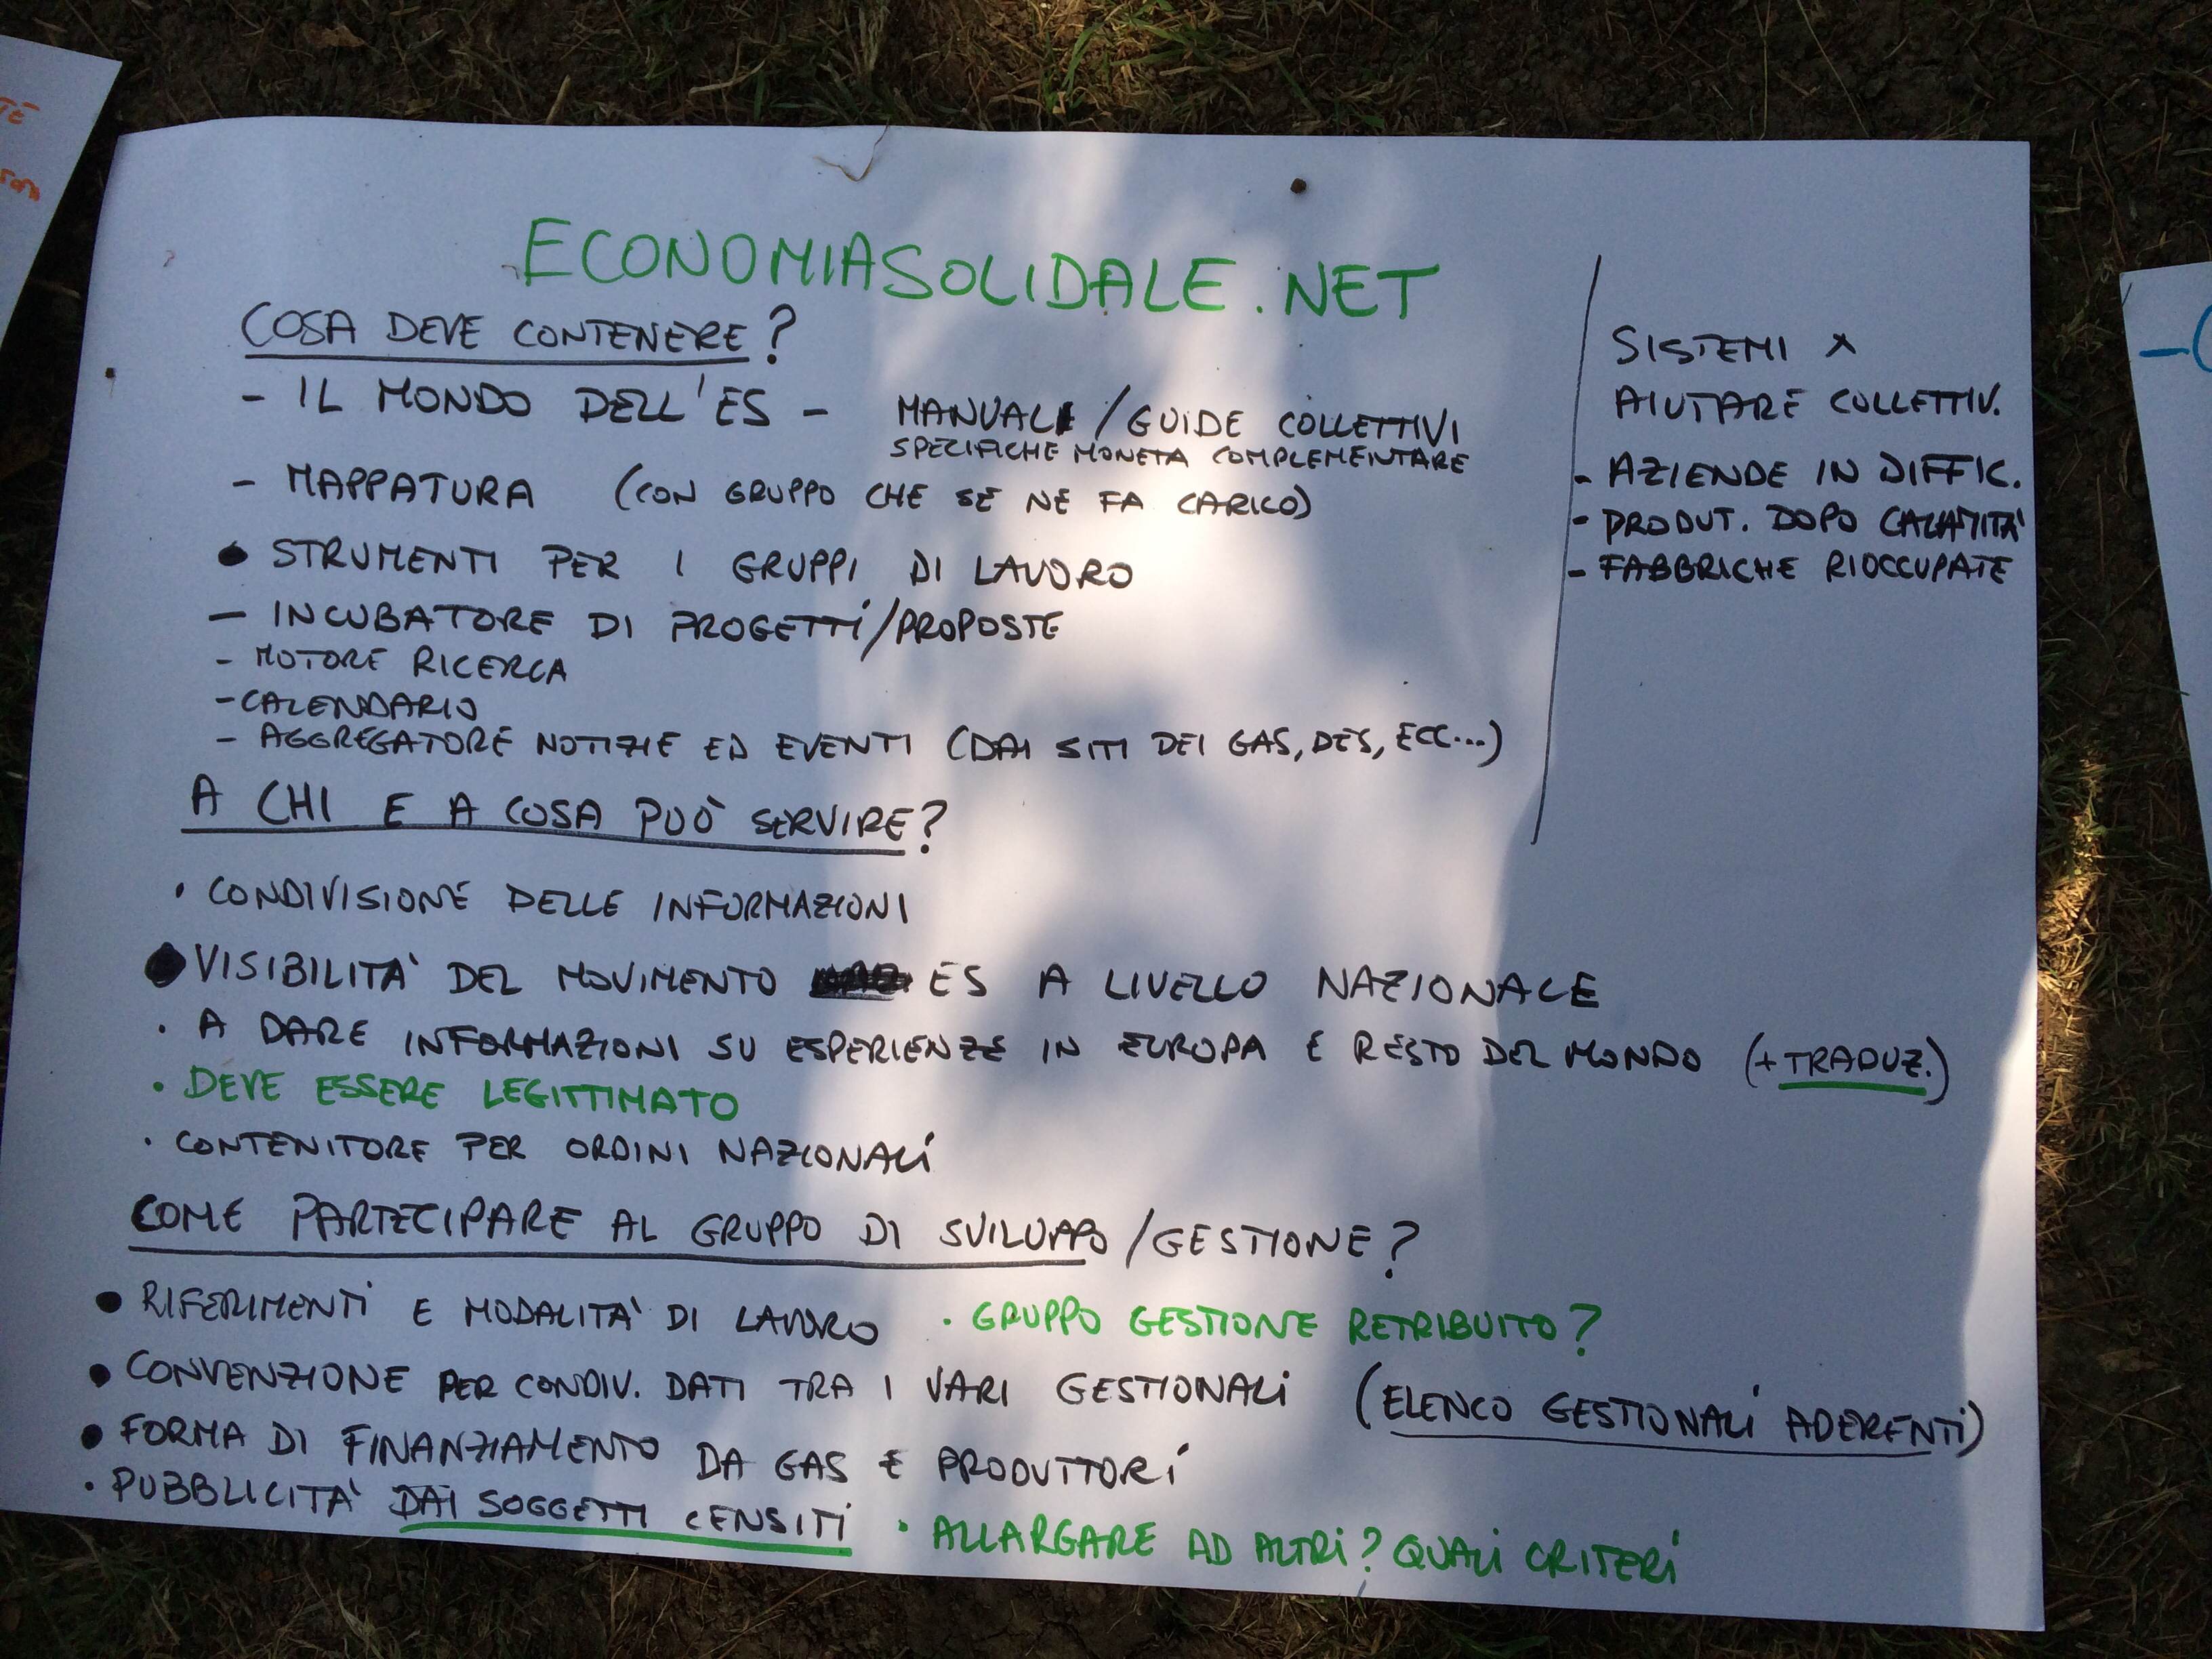 ECONOMIASOLIDALE.NET
COSA DEVE CONTENERE?
- IL MONDO DELL'ES - MANUALI/GUIDE COLLETTIVI
SPECIFICHE MONETA COMPLEMENTARE
- MAPPATURA (CON GRUPPO CHE SE NE FA CARICO)
• STRUMENTI PER I GRUPPI DI LAVORO
- INCUBATORE DI PROGETTI/PROPOSTE
- MOTORE RICERCA
- CALENDARIO
- AGGREGATORE NOTIZIE ED EVENTI (DAI SITI DEI GAS, DES, ECC...)
SISTEMI X
AIUTARE COLLETTIV.
- AZIENDE IN DIFFIC.
- PRODUT. DOPO CALAMITA'
- FABBRICHE RIOCCUPATE
A CHI E A COSA PUÒ SERVIRE?
• CONDIVISIONE DELLE INFORMAZIONI
• VISIBILITA' DEL MOVIMENTO ES A LIVELLO NAZIONALE
• A DARE INFORMAZIONI SU ESPERIENZE IN EUROPA E RESTO DEL MONDO (+TRADUZ.)
• DEVE ESSERE LEGITTIMATO
• CONTENITORE PER ORDINI NAZIONALI
COME PARTECIPARE AL GRUPPO DI SVILUPPO/GESTIONE?
• RIFERIMENTI E MODALITA' DI LAVORO • GRUPPO GESTIONE RETRIBUITO?
• CONVENZIONE PER CONDIV. DATI TRA I VARI GESTIONALI (ELENCO GESTIONALI ADERENTI)
• FORMA DI FINANZIAMENTO DA GAS E PRODUTTORI
• PUBBLICITA' DAI SOGGETTI CENSITI • ALLARGARE AD ALTRI? QUALI CRITERI